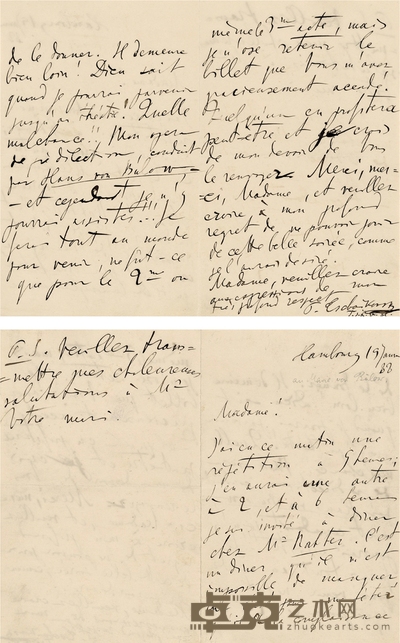 de le donner. Il demeure
bien loin! Dieu sait
quand je pourrai parvenir
jusqu'au théâtre. Quelle
malchance!! Mon opéra
de prédilection, conduit
par Hans von Bülow,
et cependant je n'y
pourrai assister... je
ferai tout au monde
pour venir, ne fut-ce
que pour le 2me ou
même le 3me acte, mais
je n'ose retenir le
billet que Vous m'avez
gracieusement accordé.
Quelqu'un en profitera
peut-être et je crois
de mon devoir de Vous
le renvoyer. Merci, mer-
ci, Madame, et veuillez
croire à mon profond
regret de ne pouvoir jouir
de cette belle soirée, comme
je l'aurais désiré.
Madame, veuillez croire
aux expressions de mon
très profond respect
P. Tschaïkovsky
P. S. Veuillez trans-
=mettre mes chaleureuses
salutations à Mr
Votre mari.
Hambourg 19 Janv
88
Madame!
J'ai eu ce matin une
répétition à 9 heures;
j'en aurai une autre
à 2, et à 6 heures
je suis invité à dîner
chez Mr Rahter. C'est
un dîner qu'il m'est
impossible de manquer
卓克艺术网
zhuokearts.com